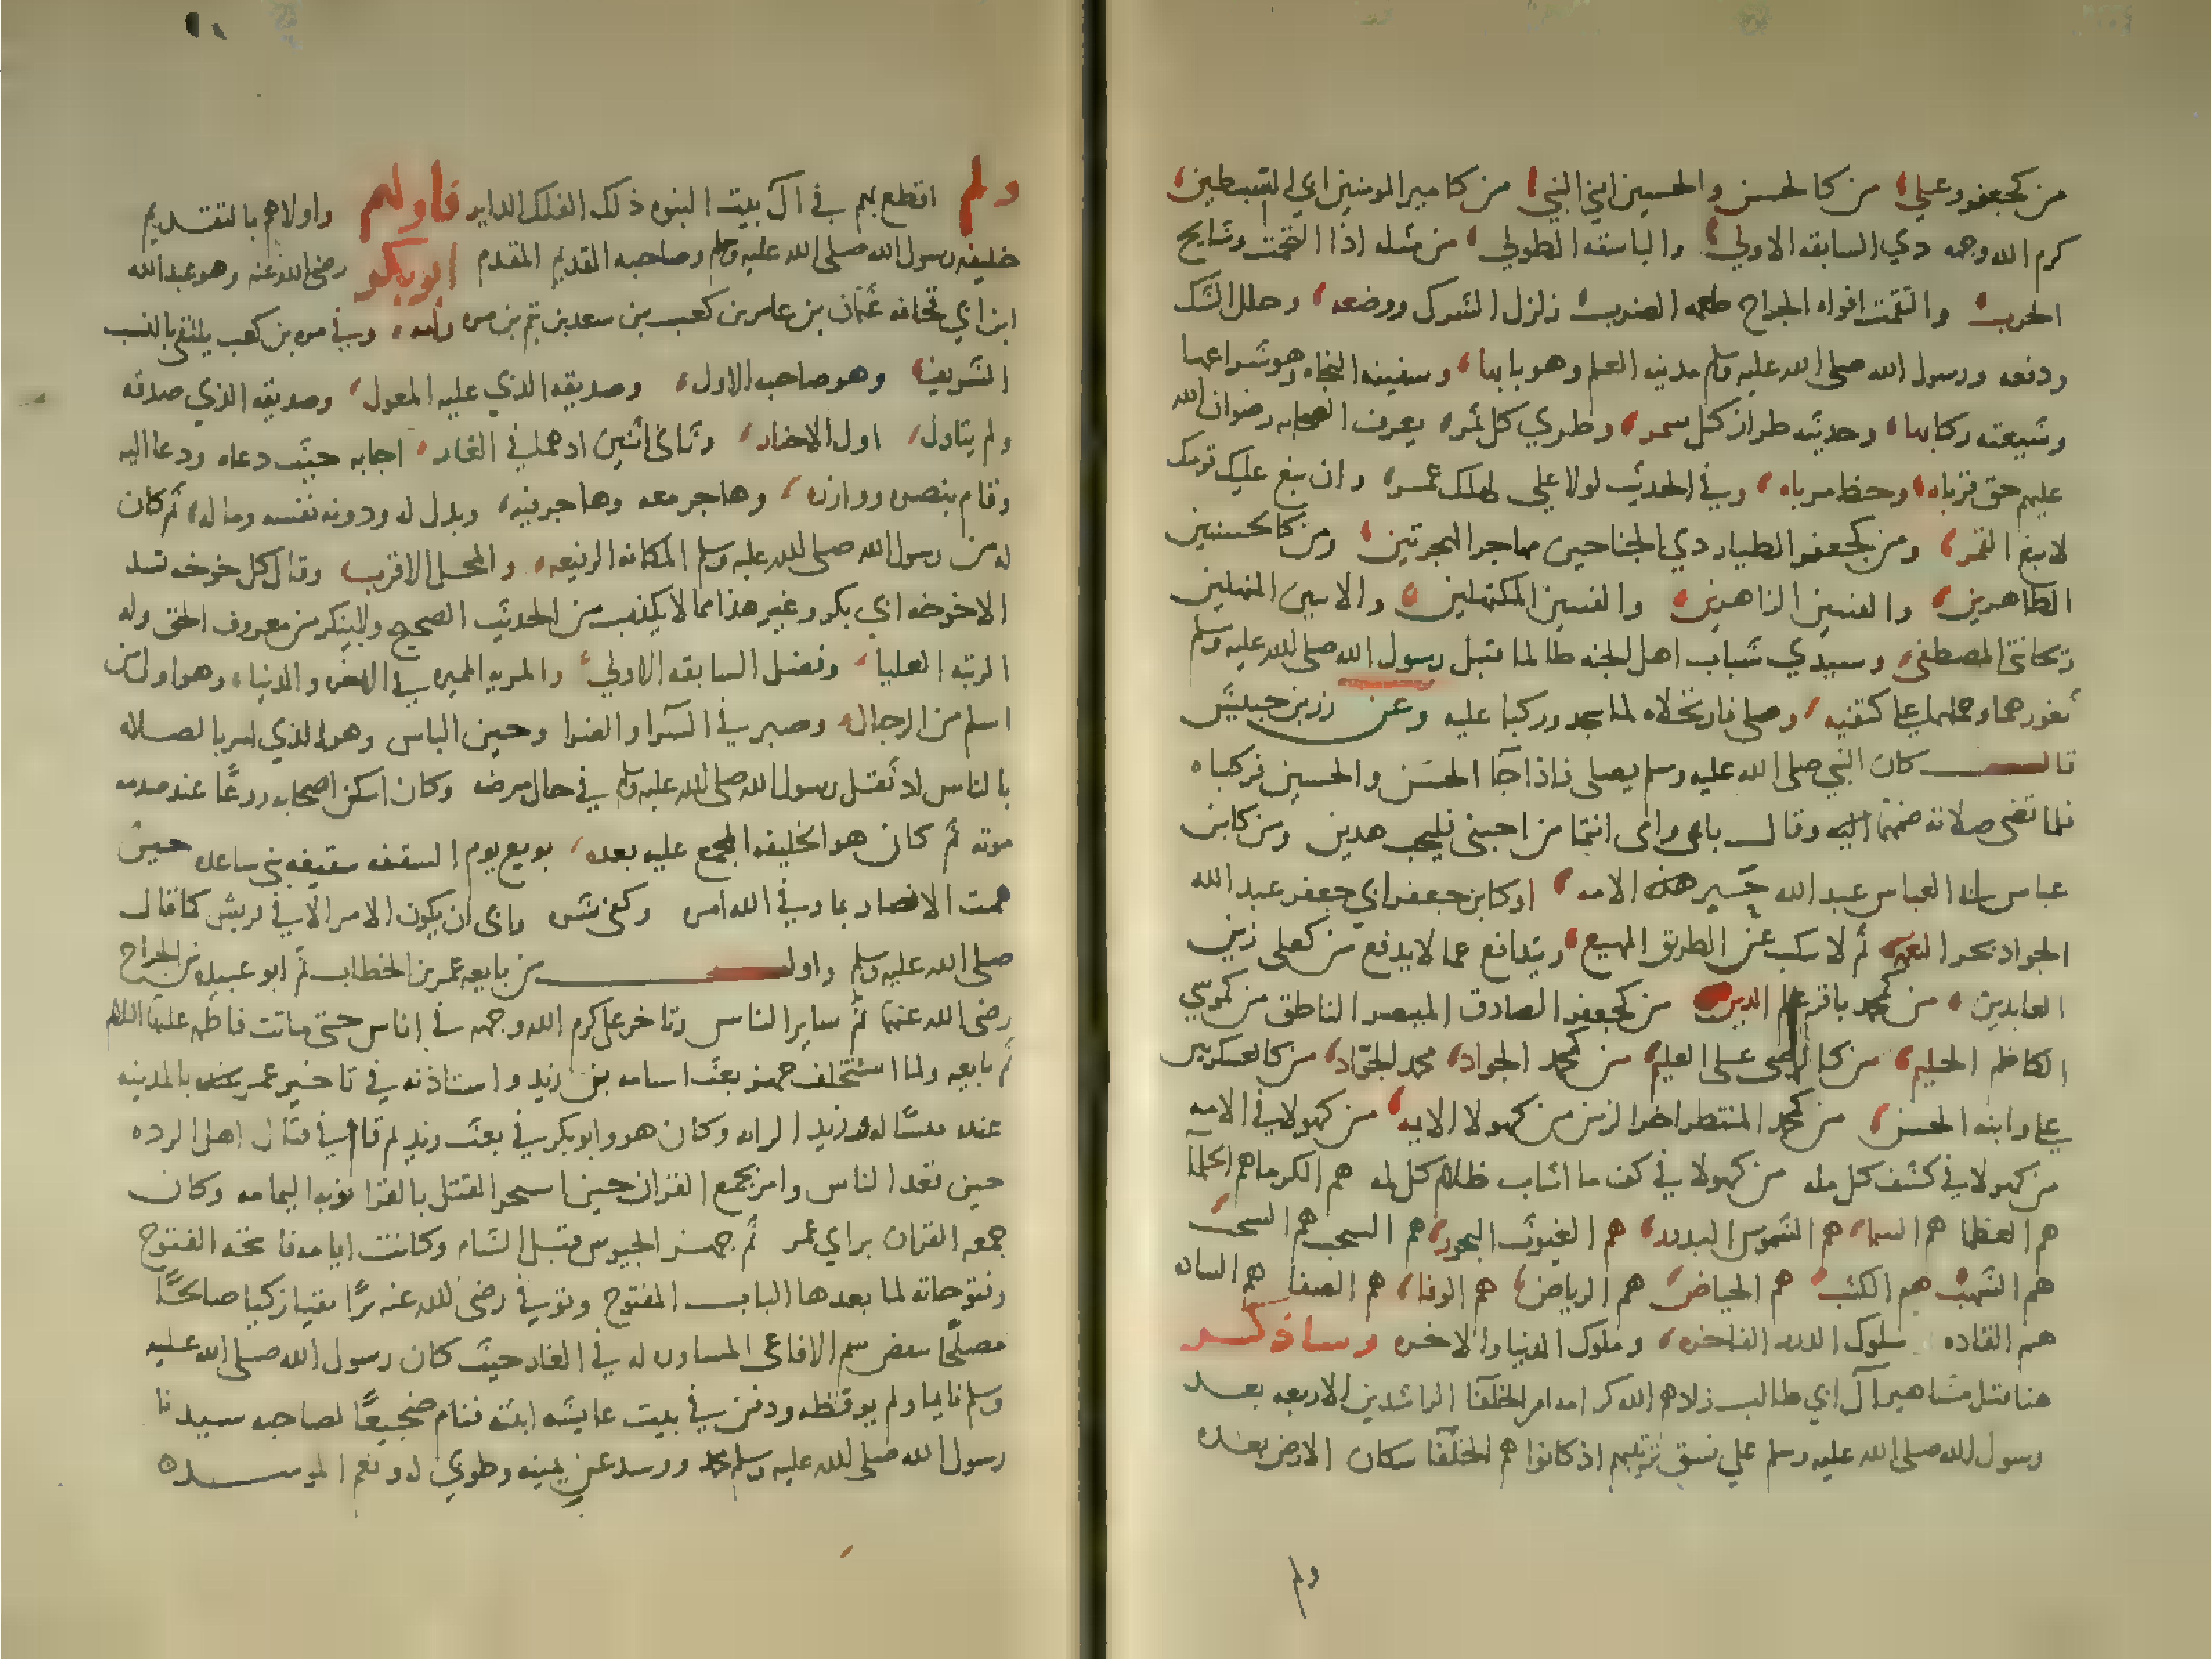 من كجعفر وعلي من كالحسن والحسين ابني النبي من كامير المومنين ابي السبطين
كرم الله وجهه ذي السابقه الاولي والباسقه الطولي من مثله اذا التحمت وشايح
الحرب والتقمت افواه الجراح طعمه الضرب زلزل الشرك ووضعه وحلل الشك
ودفعه ورسول الله صلى الله عليه وسلم مدينه العلم وهو بابها وسفينه النجاه وهو شراعها
وشيعته ركابها وحديثه طراز كل سمر وطري كل ثمره يعرف الصحابه رضوان الله
عليهم حق قرباه وحظ مرباه وفي الحديث لولا علي لهلك عمر وان يبغ عليك قومك
لا يبغ القمر ومن كجعفر الطيار ذي الجناحين مهاجر الهجرتين ومن كالحسنين
الطاهرين والغصنين الزاهرين والغصنين المكتهلين والابين المنهلين
ريحانتي المصطفى وسيدي شباب اهل الجنه طالما قبل رسول الله صلى الله عليه وسلم
ثغورهما وحملهما على كتفيه وصلى فارتحلاه لما سجد وركبا عليه وعن زر بن حبيش
قال كان النبي صلى الله عليه وسلم يصلى فاذا جآ الحسن والحسين فركباه
فلما قضى صلاته ضمهما اليه وقال بابي وامى انتما من احبنى فليحب هذين ومن كابن
عباس العباس عبد الله حبر هذه الامه او كابن جعفر ابي جعفر عبد الله
الجواد نحر ثم لا نكب عن الطريق المهيع وتدافع عما لا يدفع من كعلى زين
العابدين من كمحمد باقر علم الدين من كجعفر الصادق المبصر الناطق من كموسي
الكاظم الحليم من كالرضى على العليم من كمحمد الجواد محمد الجوّاد من كالعسكريين
على وابنه الحسن من كمحمد المنتظر اخر الزمن من كهولا الايه من كهولا في الامه
من كهولا في كشف كل مله من كهولا في كف ما انتاب ظلام كل هم الكرما هم الحلمآ
هم العظما هم السماء هم الشموس البدور هم الغيوث البحور هم السحب هم السحب
هم الشهب هم الكثب هم الحياض هم الرياض هم الوفا هم الصفا هم الساده
هم القاده سلوك الدرر الفاخره وملوك الدنيا والاخره وساذكر
هنا قبل مشاهير آل ابي طالب زادهم الله كرامه امر الخلفآ الراشدين الاربعه بعد
رسول الله صلى الله عليه وسلم علي نسق ترتيبهم اذ كانوا هم الخلفآ سكان الارض بعده
ولم
١٠
ولم اقطع بهم في آل بيت النبوه ذلك الفلك الداير فاولهم واولاهم بالتقديم
خليفه رسول الله صلى الله عليه وسلم وصاحبه القديم المقدم ابو بكر رضى الله عنه وهو عبد الله
ابن ابي قحافه عثمان بن عامر بن كعب بن سعد بن تيم بن مره وفي مره بن كعب يلتقى بالنسب
الشريف وهو صاحب الاول وصديقه الذي عليه المعول وصديقه الذي صدقه
ولم يتاول اول الاخيار وثانى اثنين اذ هما في الغار اجابه حيث دعاه ودعا اليه
وقام بنصره ووازره وهاجر معه وهاجر فيه وبذل له ودونه نفسه وماله ثم كان
له من رسول الله صلى الله عليه وسلم المكانه الرفيعه والمحل الاقرب وقال كل خوخه تسد
الا خوخه ابي بكر وغير هذا مما لا يكذب من الحديث الصحيح ولا ينكر من معروف الحق وله
الرتبه العليا وفضل السابقه الاولي والمزيه المميزه في الاخره والدنيا وهو اول من
اسلم من الرجال وصبر في السّرا والضرا وحين الباس وهو الذي امر بالصلاه
بالناس لا ثقل رسول الله صلى الله عليه وسلم في حال مرضه وكان اسكن اصحابه روعًا عند صدمه
موته ثم كان هو الخليفه المجمع عليه بعده بويع يوم السقيفه سقيفه بنى ساعده حين
همت الانصار بما وفي الله امره وكفى شره وابى ان يكون الامر الا في قريش كما قال
صلى الله عليه وسلم واول من بايعه عمر بن الخطاب ثم ابو عبيده بن الجراح
رضى الله عنهما ثم ساير الناس وتاخر على كرم الله وجهه في اناس حتى ماتت فاطمه عليها السلام
ثم بايعه ولما استخلف جهز بعث اسامه بن زيد واستاذنه في تاخير عمر عنده بالمدينه
عنده الرايه وكان هو وابو بكر في بعث زيد ثم قام في قتال اهل الرده
حين قعد الناس وامر بجمع القران حين استحر القتل بالقرا نوبه اليمامه وكان
جمعه القران براي عمر ثم جهز الجيوش قبل الشام وكانت ايامه فاتحه الفتوح
وفتوحاته لما بعدها الباب المفتوح وتوفي رضى الله عنه برًّا تقيا زكيا صالحًا
مصلحًا سم الافاعى المساوره له في الغار حيث كان رسول الله صلى الله عليه
وسلم نايما ولم يوقظه ودفن في بيت عايشه ابنته فنام ضجيعًا لصاحبه سيدنا
رسول الله صلى الله عليه وسلم ووسد عن يمينه وطوبي له ونعم الموسده